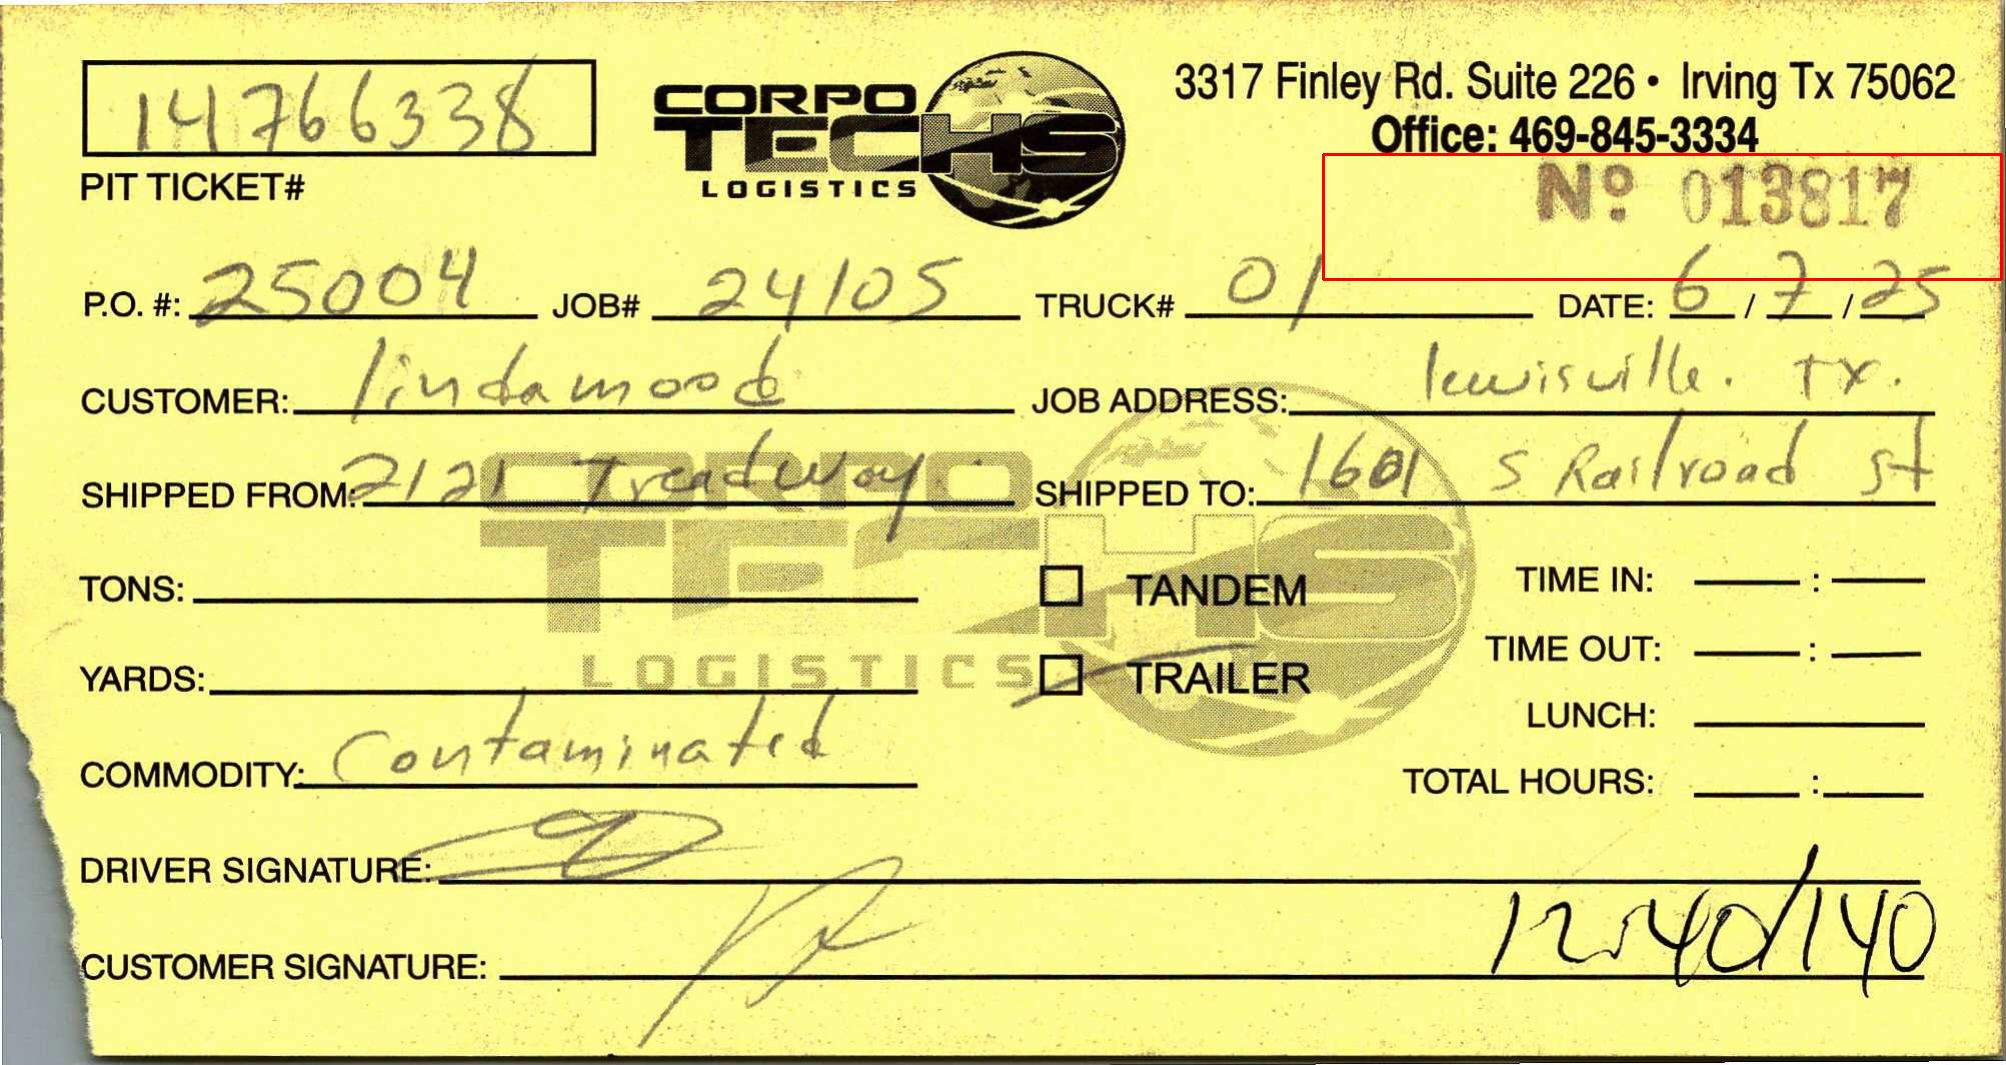 14766338
PIT TICKET#
CORPO
TECHS
LOGISTICS
3317 Finley Rd. Suite 226 • Irving Tx 75062
Office: 469-845-3334
Nº 013817
P.O. #: 25004 JOB# 24105 TRUCK# 01 DATE: 6 / 7 / 25
CUSTOMER: lindamood JOB ADDRESS: lewisville. TX.
SHIPPED FROM: 2121 Treadway. SHIPPED TO: 1601 S Railroad St
CORPO
TECHS
LOGISTICS
TONS: TANDEM TIME IN: :
YARDS: TRAILER TIME OUT: :
LUNCH:
COMMODITY: Contaminated TOTAL HOURS: :
DRIVER SIGNATURE:
CUSTOMER SIGNATURE: 12:40/140